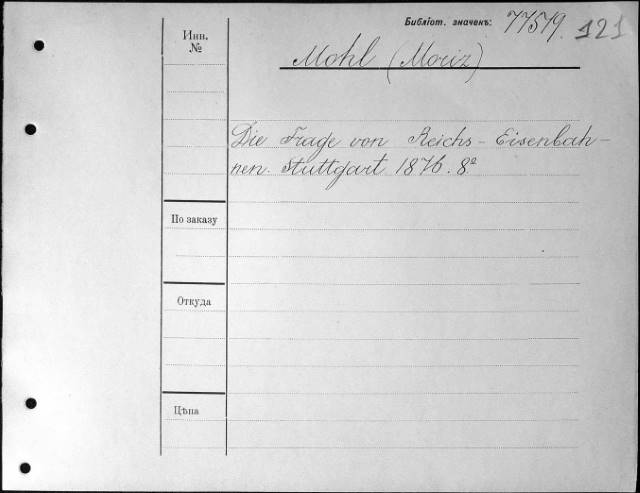 Библіот. значекъ: 77579. 121
Инв. №
Mohl (Moriz)
Die Frage von Reichs-Eisenbah-
nen. Stuttgart 1876. 8º
По заказу
Откуда
Цѣна